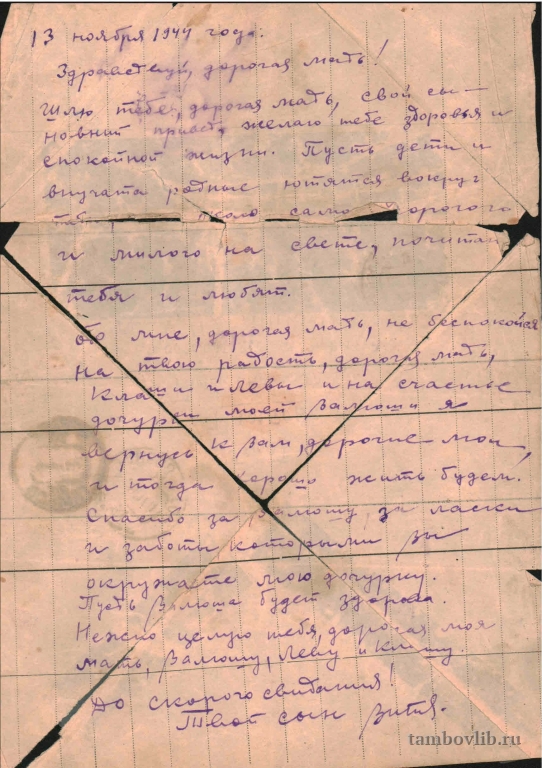 13 ноября 1944 года.
Здравствуй, дорогая мать!
Шлю тебе, дорогая мать, свой сы-
новний привет, желаю тебе здоровья и
спокойной жизни. Пусть дети и
внучата родные ютятся вокруг
само орогого
и милого на свете, почитаю
тебя и любят.
Обо мне, дорогая мать, не беспокойся
на твою радость, дорогая мать,
Клаши и Левы и на счастье
дочурки моей Валюши я
вернусь к вам, дорогие мои,
и тогда хорошо жить будем!
Спасибо за Валюшу, за ласки
и заботы, которыми вы
окружаете мою дочурку.
Пусть Валюша будет здорова.
Нежно целую тебя, дорогая моя
мать, Валюшу, Леву и Клашу.
До скорого свидания!
Твой сын Витя.
tambovlib.ru